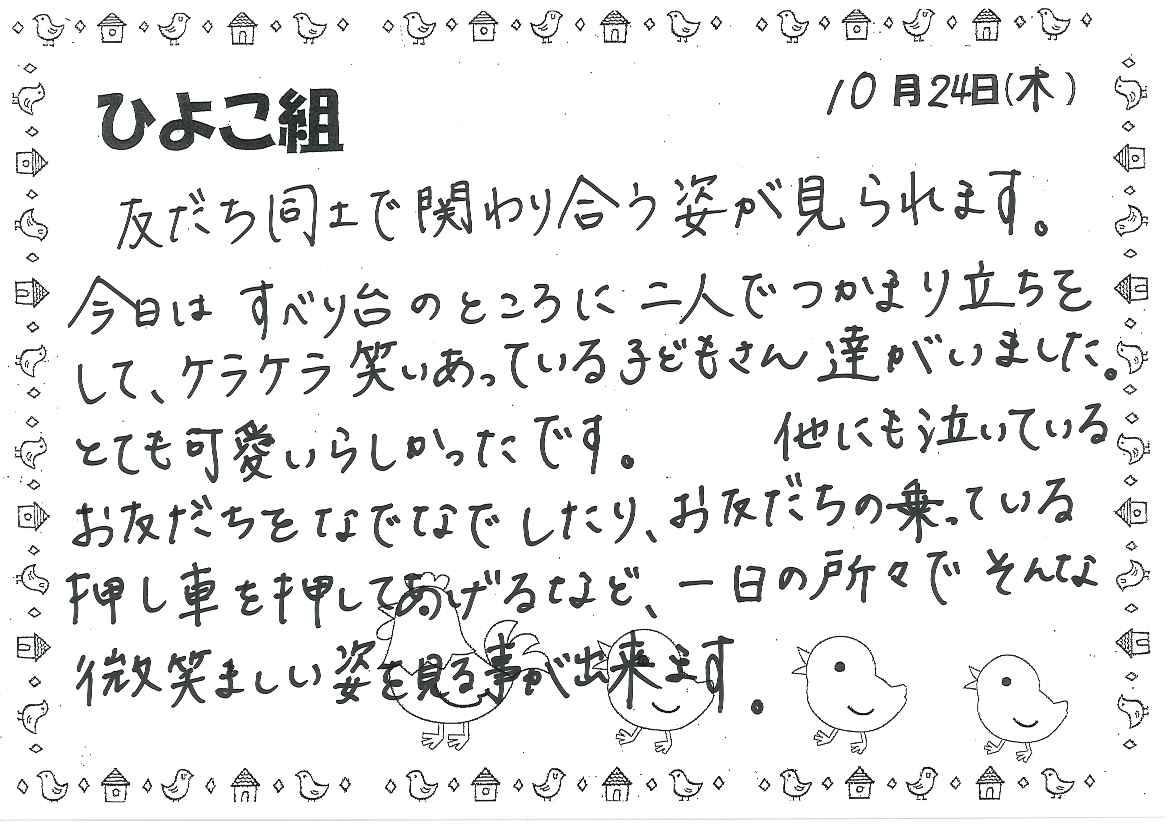 ひよこ組
10月24日(木)
友だち同士で関わり合う姿が見られます。
今日は すべり台のところに 二人でつかまり立ちを
して、ケラケラ笑いあっている子どもさん達がいました。
とても可愛いらしかったです。 他にも泣いている
お友だちをなでなでしたり、お友だちの乗っている
押し車を押してあげるなど、一日の所々でそんな
微笑ましい姿を見る事が出来ます。